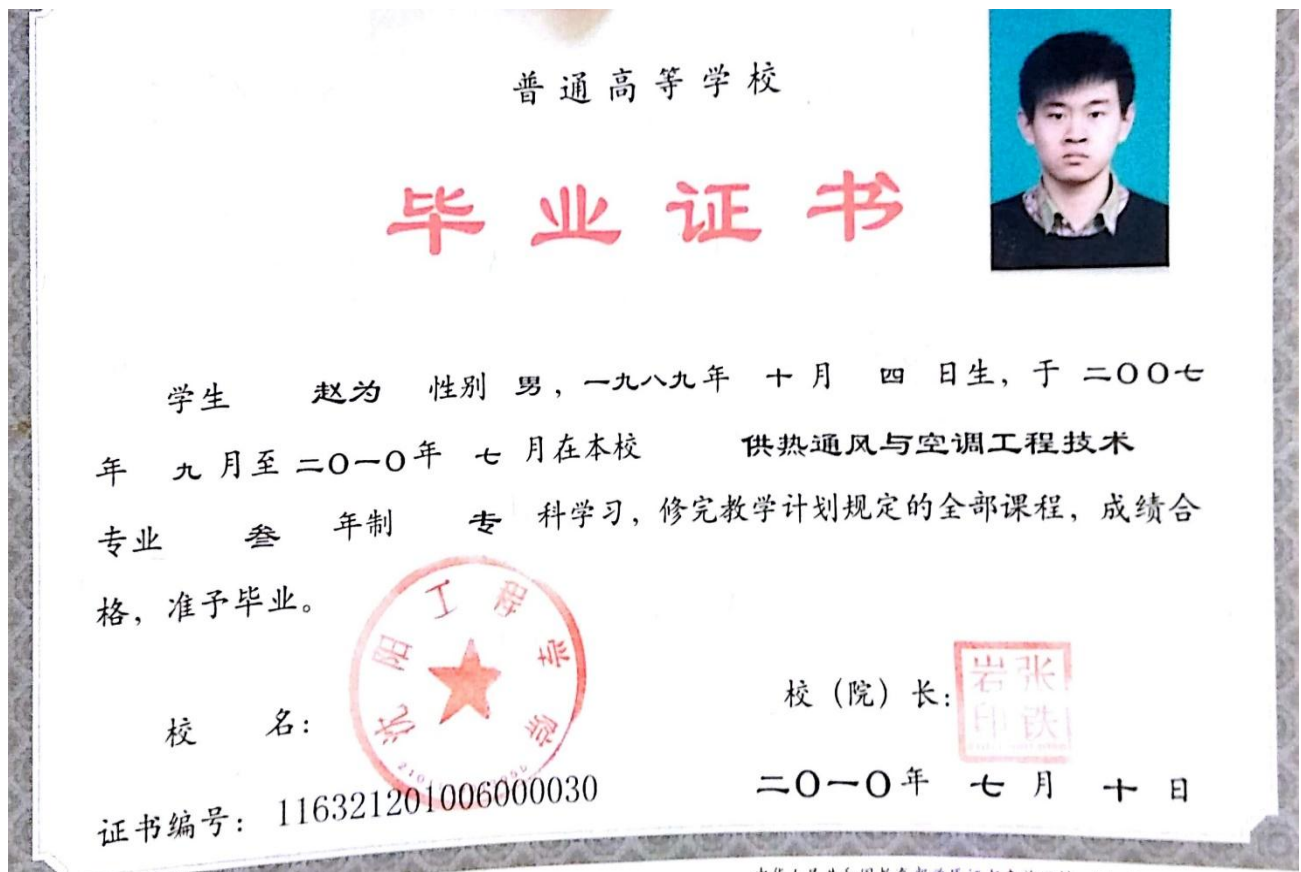 普通高等学校
毕业证书
学生 赵为 性别 男，一九八九年 十月 四 日生，于 二〇〇七
年 九 月至 二〇一〇年 七 月在本校 供热通风与空调工程技术
专业 叁 年制 专 科学习，修完教学计划规定的全部课程，成绩合
格，准予毕业。
沈阳工程学院
校 名：
校（院）长：
张铁岩印
证书编号：116321201006000030
二〇一〇年 七 月 十 日